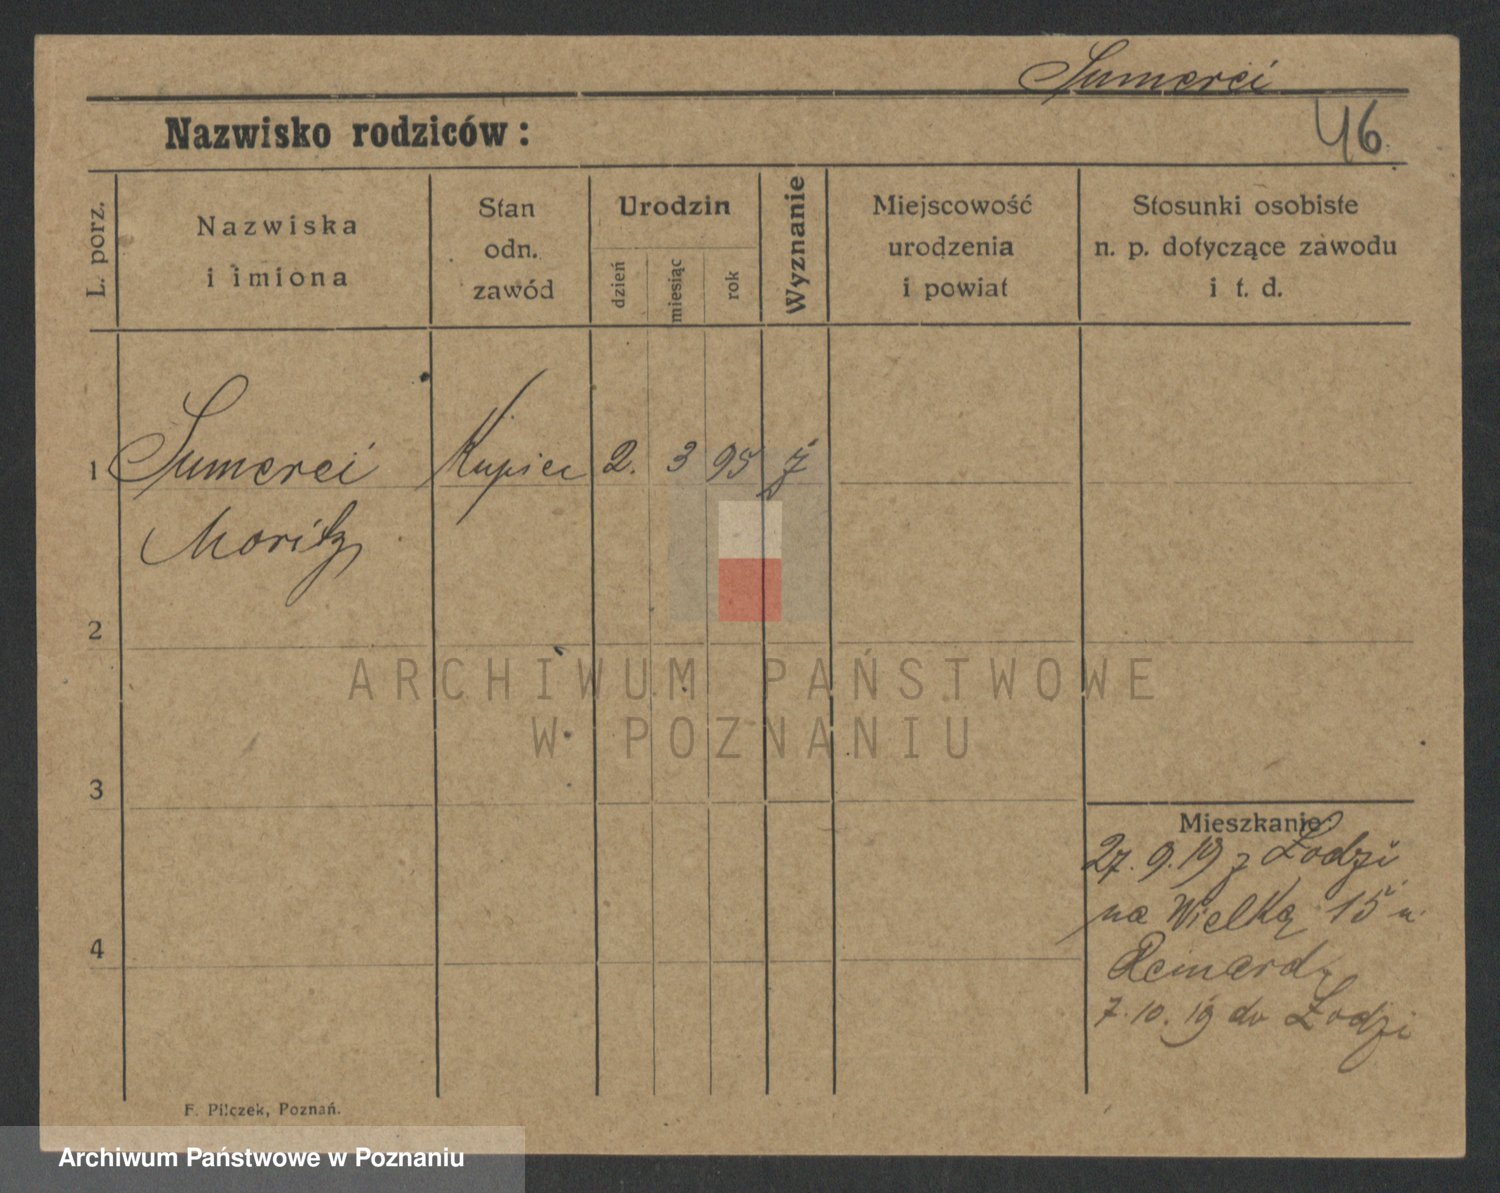 Sumerei
46
Nazwisko rodziców:
L. porz.
Nazwiska
i imiona
Stan
odn.
zawód
Urodzin
dzień
miesiąc
rok
Wyznanie
Miejscowość
urodzenia
i powiat
Stosunki osobiste
n. p. dotyczące zawodu
i t. d.
1 Sumerei Kupiec 2. 3 95 ż
Moritz
2
3
4
Mieszkanie
27. 9. 19 z Łodzi
na Wielką 15 u
7. 10. 19 do Łodzi
F. Pilczek, Poznań.
ARCHIWUM PAŃSTWOWE
W POZNANIU
Archiwum Państwowe w Poznaniu